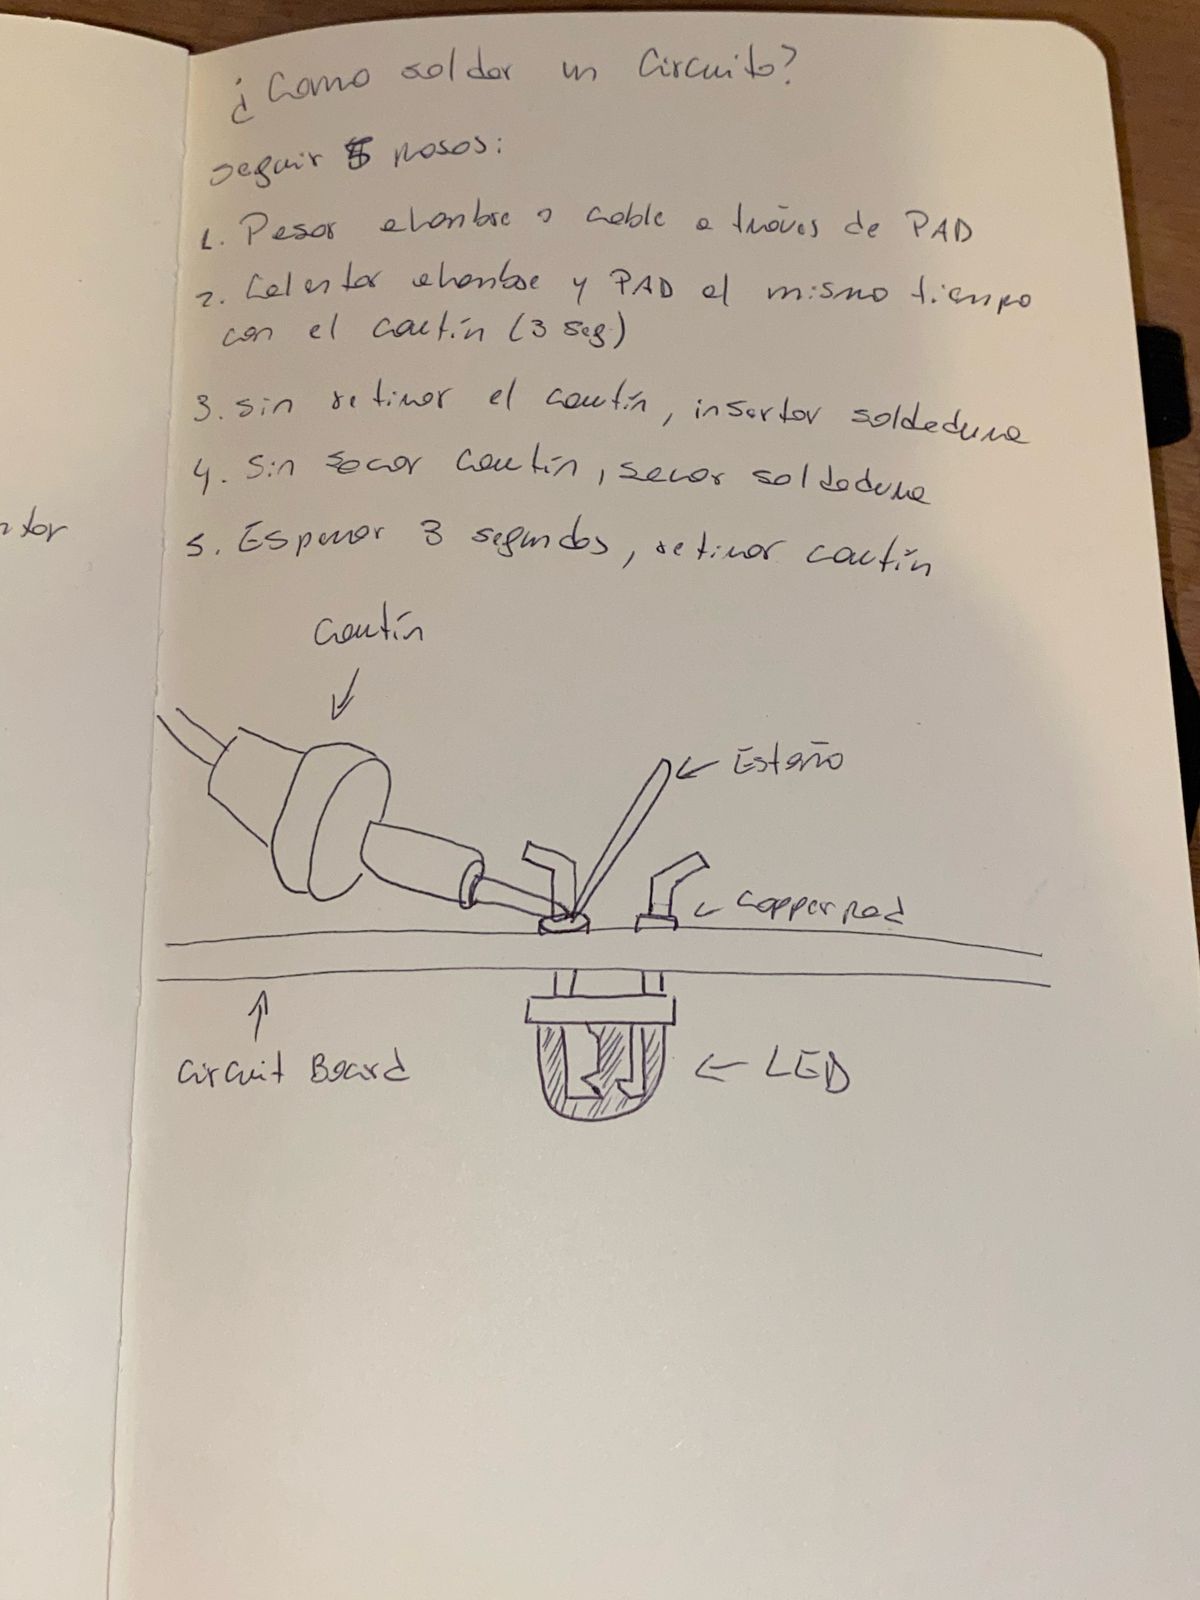 ¿Como soldar un Circuito?
seguir 5 pasos:
1. Pasar alambre o cable a través de PAD
2. Calentar alambre y PAD al mismo tiempo
con el cautín (3 seg)
3. sin retirar el cautín, insertar soldadura
4. Sin secar cautín, secar soldadura
5. Esperar 3 segundos, retirar cautín
Cautín
Estaño
Copper pad
Circuit Board
LED